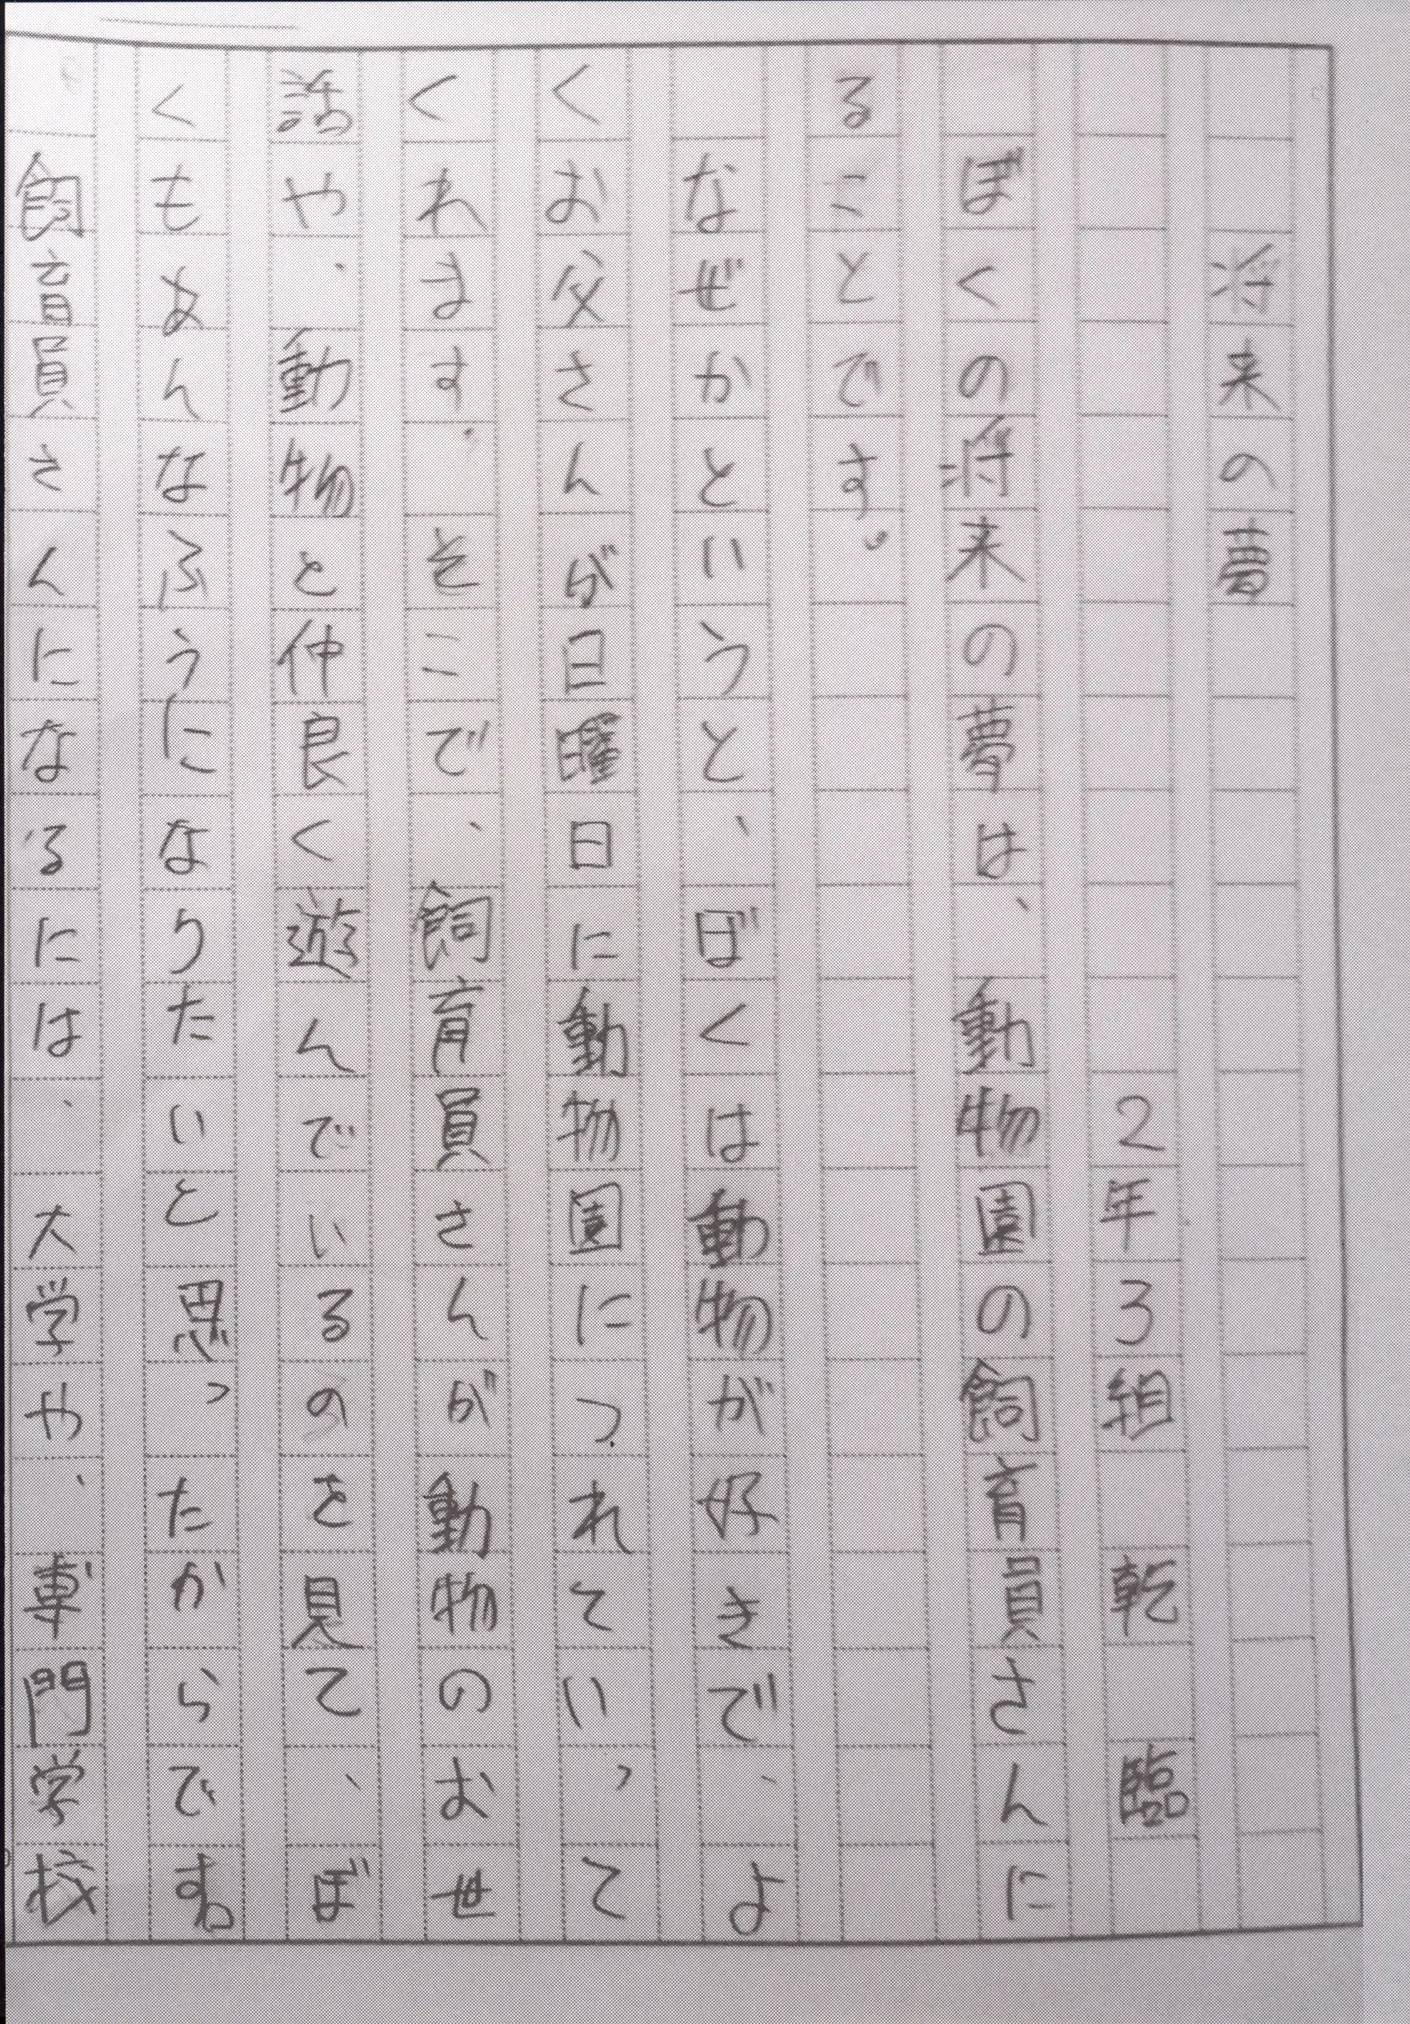 将来の夢
2年3組 乾 臨
ぼくの将来の夢は、動物園の飼育員さんに
ることです。
なぜかというと、ぼくは動物が好きで、よ
くお父さんが日曜日に動物園につれていって
くれます、そこで、飼育員さんが動物のお世
話や、動物と仲良く遊んでいるのを見て、ぼ
くもあんなふうになりたいと思ったからです。
飼育員さんになるには、大学や、専門学校